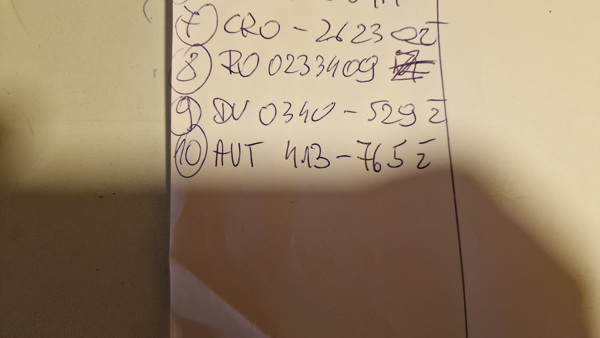 7 CRO - 2623 QZ
8 RO 0233409
9 DV 0340 - 529 Z
10 AUT 413 - 765 Z